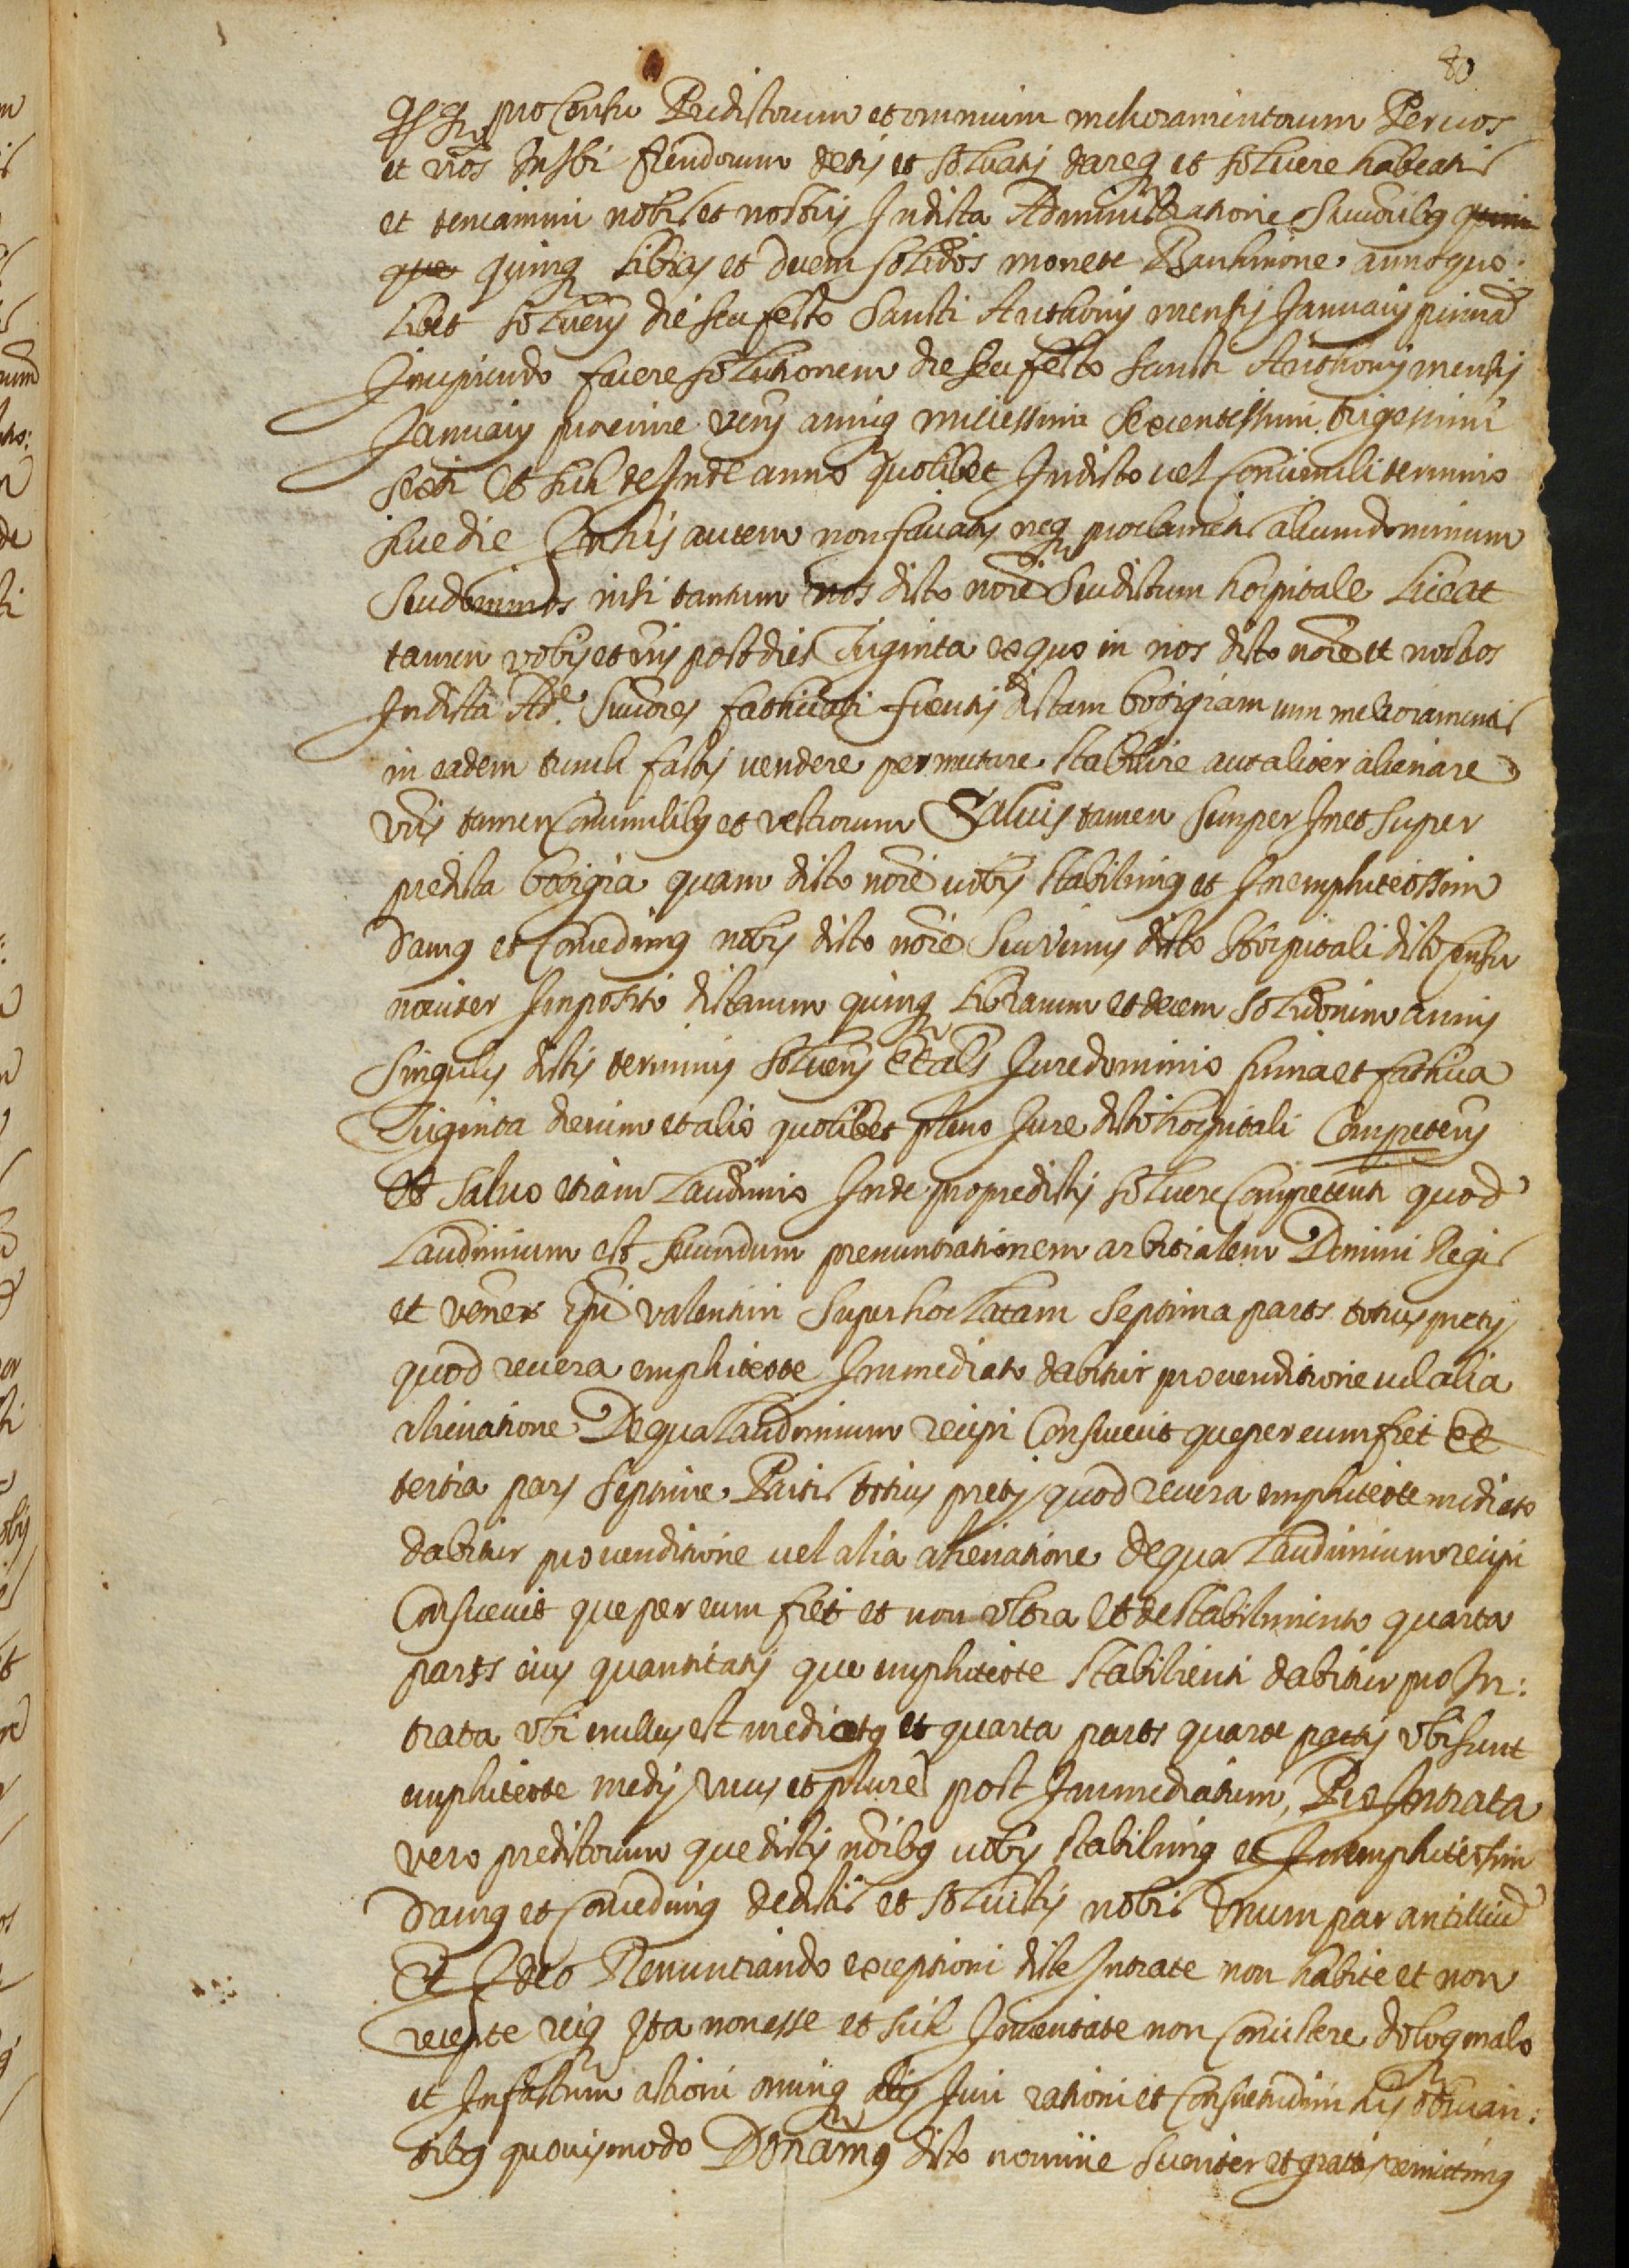 80
pro Censu Predictorum et omnium melioramentorum Per vos
et vros Inibi fiendorum detis et solvatis dareq et solvere habeatis
et teneamini nobis et nostris In dicta Administratione Successoribq quin
que quinq Libras et decem solidos monete Barchinone anno quo:
Libet solvens die seu festo Sancti Anthonij mensis Januarij primam
Incipiendo facere solutionem die seu festo Sancti Anthonij mensis
Januarij proxime venj anniq millessimi sexcentessimi trigesimi
sexti Et sich de Inde anno quolibet In dicto vel Consimili termino
sive die In his autem non faciatis neq proclametis alium dominum
seu dominos nisi tantum nos dicto noie seu dictum hospitale Liceat
tamen vobis et vris post dies Triginta ex quo in nos dicto noie et nostros
In dicta Ade Succores fathicati fueritis dictam botigiam cum melioramentis
in eadem tunch factis vendere permutare stabilire aut aliter alienare
vris tamen Consimilibq et vestrorum Salvis tamen Semper In et super
predicta botigia quam dicto noie vobis stabilimq et In emphiteossim
Damq et Concedimq nobis dicto noie seu verius dicto Hospitali dicto Censu
noviter Imposito dictarum quinq Librarum et decem solidorum annis
Singulis dictis terminis solvens Et als Jure dominio firma et fathica
Triginta dierum et alio quolibet pleno Jure dicto hospitali Competens
Et salvo etiam Laudimio Inde pro predictis solvere Competenti quod
Laudimium est secundum prenuntiationem arbitralem Domini Regis
et vener Epi valentin Super hoc Latam Septima pars totius pretij
quod revera emphiteote Immediato dabitur pro venditione vel alia
alienatione De qua Laudimium recipi Consuevit que per eum fiet Et
tertia pars septime Partis totius pretij quod revera emphiteote mediato
dabitur pro venditione vel alia alienatione de qua Laudimium recipi
Consuevit que per eum fiet et non ultra Et de stabilimento quarta
pars eius quantitatis que emphiteote stabilienti dabitur pro In:
trata vbi nullus est mediatq et quarta pars quarte partis vbi sunt
emphiteote medij vnus et plures post Immediatum, Pro Intrata
vero predictorum que dictis noibq vobis stabilimq et In emphiteossim
Damq et Concedimq dedistis et solvistis nobis Vnum par antilliud
Et Ideo Renuntiando exceptioni dicte Intrate non habite et non
recepte reiq Ita non esse et sich In veritate non Consistere doloq malo
et In factum actioni omniq alij Juri rationi et Consuetudini his obvian:
tibq quovismodo Donamq dicto nomine scienter et gratis remittimq